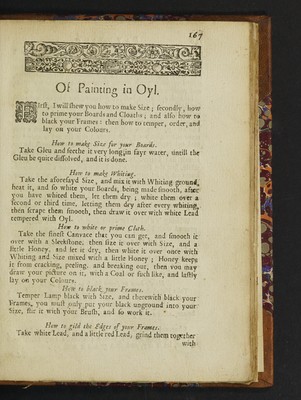 167
Of Painting in Oyl.
First, I will shew you how to make Size; secondly, how
to prime your Boards and Cloaths; and also how to
black your Frames: then how to temper, order, and
lay on your Colours.
How to make Size for your Boards.
Take Gleu and seethe it very long in fayr water, untill the
Gleu be quite dissolved, and it is done.
How to make Whiting.
Take the aforesayd Size, and mix it with Whiting ground,
heat it, and so white your Boards, being made smooth, after
you have whited them, let them dry; white them over a
second or third time, letting them dry after every whiting,
then scrape them smooth, then draw it over with white Lead
tempered with Oyl.
How to white or prime Cloth.
Take the finest Canvace that you can get, and smooth it
over with a Sleekstone, then size it over with Size, and a
little Honey, and let it dry, then white it over once with
Whiting and Size mixed with a little Honey; Honey keeps
it from cracking, peeling, and breaking out, then you may
draw your picture on it, with a Coal or such like, and lastly
lay on your Colours.
How to black your Frames.
Temper Lamp black with Size, and therewith black your
Frames, you must only put your black unground into your
Size, stir it with your Brush, and so work it.
How to gild the Edges of your Frames.
Take white Lead, and a little red Lead, grind them together
with